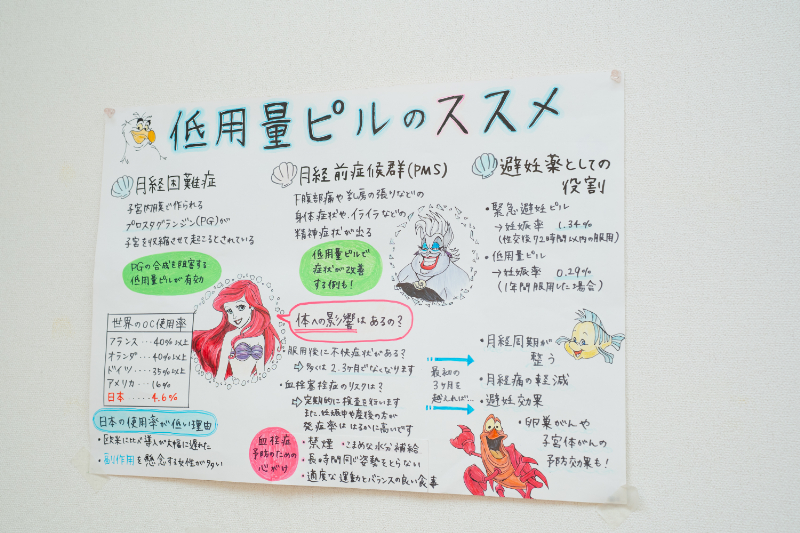 低用量ピルのススメ
月経困難症
子宮内膜で作られる
プロスタグランジン(PG)が
子宮を収縮させて起こるとされている
PGの合成を阻害する
低用量ピルが有効
月経前症候群(PMS)
下腹部痛や乳房の張りなどの
身体症状や、イライラなどの
精神症状が出る
低用量ピルで
症状が改善
する例も!
避妊薬としての
役割
・緊急避妊ピル
→妊娠率 1.34%
(性交後72時間以内の服用)
・低用量ピル
→妊娠率 0.29%
(1年間服用した場合)
世界のOC使用率
フランス…40%以上
オランダ…40%以上
ドイツ…35%以上
アメリカ…16%
日本…4.6%
日本の使用率が低い理由
・欧米に比べ導入が大幅に遅れた
・副作用を懸念する女性が多い
体への影響はあるの?
・服用後に不快症状がある?
⇨多くは2.3ヶ月でなくなります
・血栓塞栓症のリスクは?
⇨定期的に検査を行います
また、妊娠中や産後の方が
発症率ははるかに高いです
血栓症
予防のための
心がけ
・禁煙 ・こまめな水分補給
・長時間同じ姿勢をとらない
・適度な運動とバランスの良い食事
最初の
3ヶ月を
越えれば…
・月経周期が
整う
・月経痛の軽減
・避妊効果
・卵巣がんや
子宮体がんの
予防効果も!